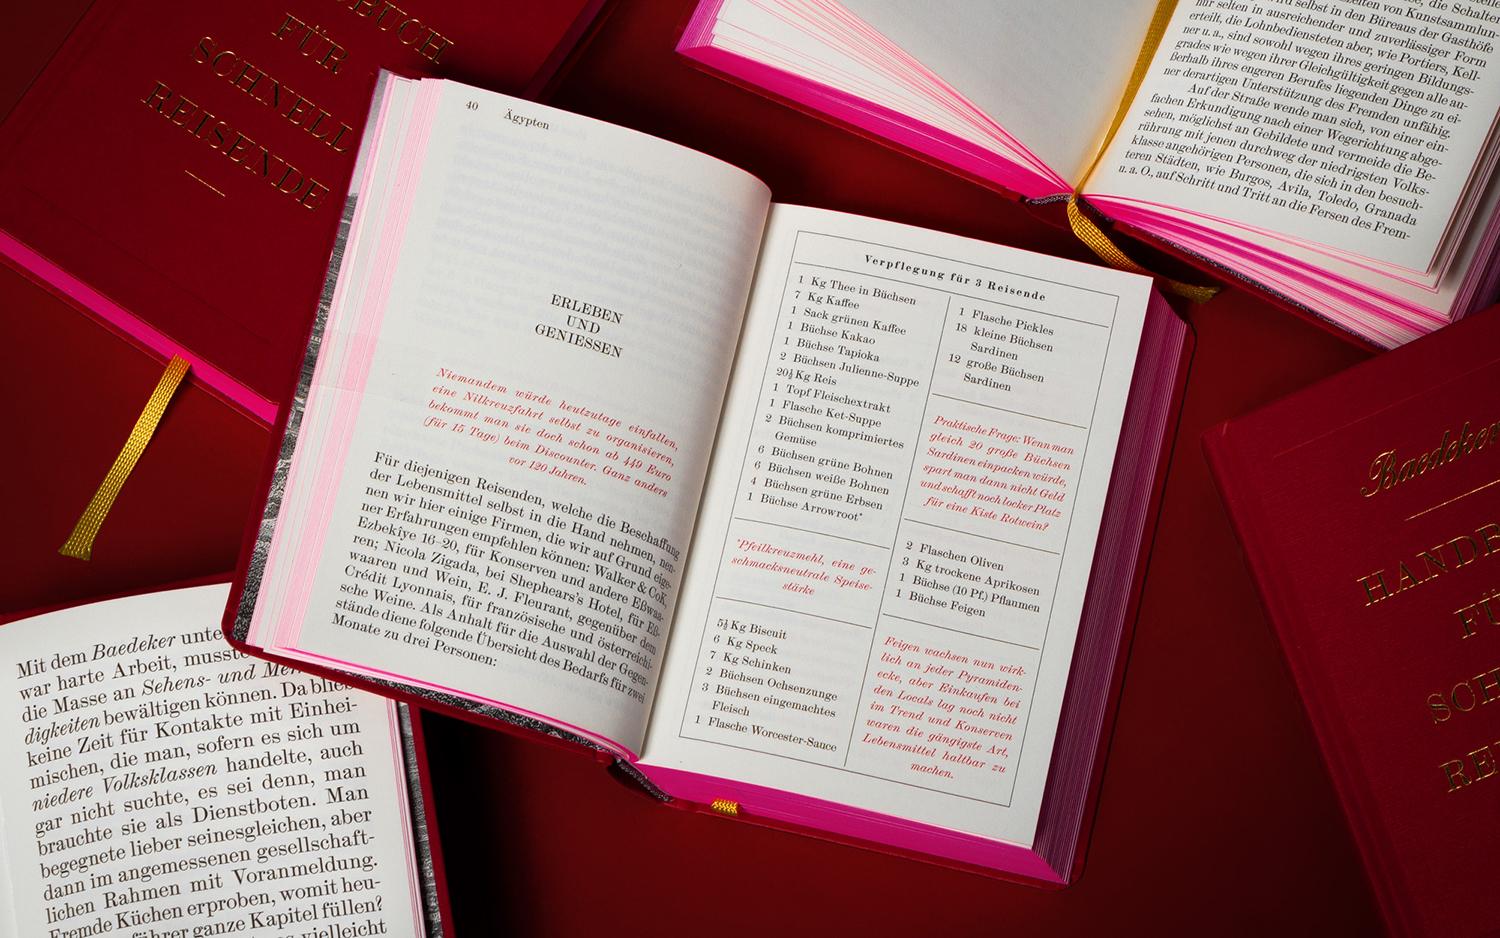 BUCH
FÜR
SCHNELL
REISENDE
40
Ägypten
ERLEBEN
UND
GENIESSEN
Niemandem würde heutzutage einfallen,
eine Nilkreuzfahrt selbst zu organisieren,
bekommt man sie doch schon ab 449 Euro
(für 15 Tage) beim Discounter. Ganz anders
vor 120 Jahren.
Für diejenigen Reisenden, welche die Beschaffung
der Lebensmittel selbst in die Hand nehmen, nen-
nen wir hier einige Firmen, die wir auf Grund eige-
ner Erfahrungen empfehlen können: Walker & CoK,
Ezbekîye 16–20, für Konserven und andere Eßwa-
ren; Nicola Zigada, bei Shephears's Hotel, für Eß-
waaren und Wein, E. J. Fleurant, gegenüber dem
Crédit Lyonnais, für französische und österreichi-
sche Weine. Als Anhalt für die Auswahl der Gegen-
stände diene folgende Übersicht des Bedarfs für zwei
Monate zu drei Personen:
Verpflegung für 3 Reisende
1 Kg Thee in Büchsen
7 Kg Kaffee
1 Sack grünen Kaffee
1 Büchse Kakao
1 Büchse Tapioka
2 Büchsen Julienne-Suppe
20½ Kg Reis
1 Topf Fleischextrakt
1 Flasche Ket-Suppe
2 Büchsen komprimiertes
Gemüse
6 Büchsen grüne Bohnen
6 Büchsen weiße Bohnen
4 Büchsen grüne Erbsen
1 Büchse Arrowroot*
*Pfeilkreuzmehl, eine ge-
schmacksneutrale Speise-
stärke
5½ Kg Biscuit
6 Kg Speck
7 Kg Schinken
2 Büchsen Ochsenzunge
3 Büchsen eingemachtes
Fleisch
1 Flasche Worcester-Sauce
1 Flasche Pickles
18 kleine Büchsen
Sardinen
12 große Büchsen
Sardinen
Praktische Frage: Wenn man
gleich 20 große Büchsen
Sardinen einpacken würde,
spart man dann nicht Geld
und schafft noch locker Platz
für eine Kiste Rotwein?
2 Flaschen Oliven
3 Kg trockene Aprikosen
1 Büchse (10 Pf.) Pflaumen
1 Büchse Feigen
Feigen wachsen nun wirk-
lich an jeder Pyramiden-
ecke, aber Einkaufen bei
den Locals lag noch nicht
im Trend und Konserven
waren die gängigste Art,
Lebensmittel haltbar zu
machen.
selbst in den Büreaus der Gasthöfe
nur selten in ausreichender und zuverlässiger Form
erteilt, die Lohnbediensteten aber, wie Portiers, Kell-
ner u. a., sind sowohl wegen ihres geringen Bildungs-
grades wie wegen ihrer Gleichgültigkeit gegen alle au-
ßerhalb ihres engeren Berufes liegenden Dinge zu ei-
ner derartigen Unterstützung des Fremden unfähig.
Auf der Straße wende man sich, von einer ein-
fachen Erkundigung nach einer Wegerichtung abge-
sehen, möglichst an Gebildete und vermeide die Be-
rührung mit jenen durchweg der niedrigsten Volks-
klasse angehörigen Personen, die sich in den besuch-
teren Städten, wie Burgos, Avila, Toledo, Granada
u. a. O., auf Schritt und Tritt an die Fersen des Frem-
Mit dem Baedeker unte
war harte Arbeit, musste
die Masse an Sehens- und Mer
digkeiten bewältigen können. Da blieb
keine Zeit für Kontakte mit Einhei-
mischen, die man, sofern es sich um
niedere Volksklassen handelte, auch
gar nicht suchte, es sei denn, man
brauchte sie als Dienstboten. Man
begegnete lieber seinesgleichen, aber
dann im angemessenen gesellschaft-
lichen Rahmen mit Voranmeldung.
Fremde Küchen erproben, womit heu-
führer ganze Kapitel füllen?
vielleicht
Baedeker
HANDB
FÜ
SCH
RE